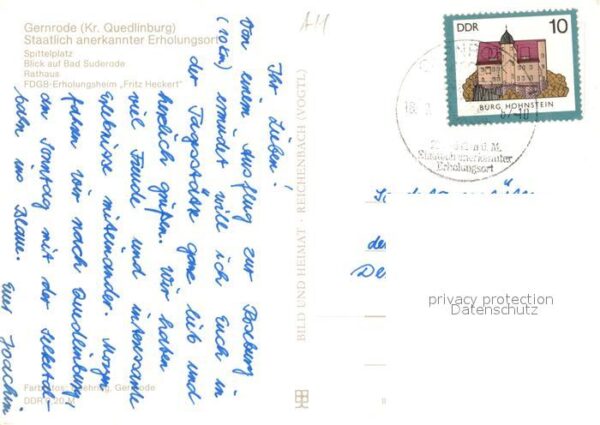 Gernrode (Kr. Quedlinburg)
Staatlich anerkannter Erholungsort
Spittelplatz
Blick auf Bad Suderode
Rathaus
FDGB-Erholungsheim „Fritz Heckert"
Ihr Lieben!
Von einem Ausflug zur Roseburg
(10km) ermüdet will ich Euch in
der Tagesstätte ganz lieb und
herzlich grüßen. Wir haben
viel Freude und interessante
Erlebnisse miteinander. Morgen
fahren wir nach Quedlinburg,
am Sonntag mit der Selketal-
bahn ins Blaue.
Euer Joachim
BILD UND HEIMAT · REICHENBACH (VOGTL)
DDR 10
BURG HOHNSTEIN
Staatlich anerkannter
Erholungsort
privacy protection
Datenschutz
Gernrode
M